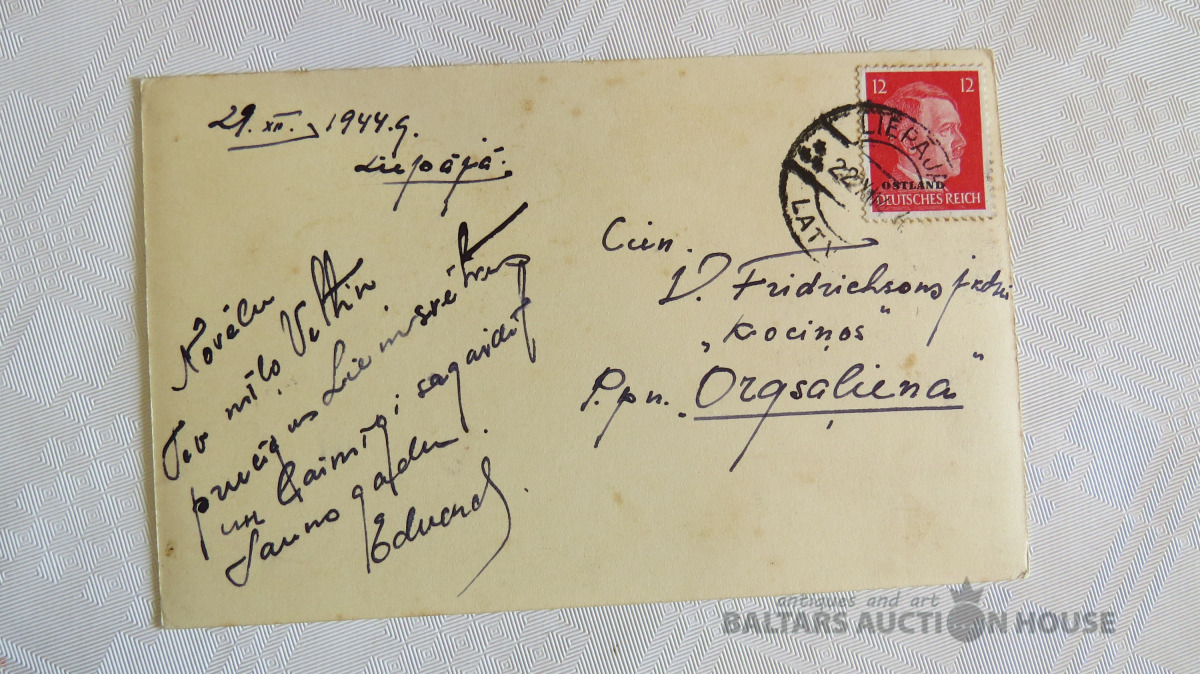 29. XII. 1944.g.
Liepājā.
Novēlu
Tev mīļo Veltiņ
priecīgus Ziemsvētkus
un laimīgi sagaidīt
Jauno gadu.
Eduards
Cien.
V. Fridrichsons
„Kociņos"
P.pn. „Orgsaliena"
12 12
OSTLAND
DEUTSCHES REICH
LIEPĀJA
22
LATV
antiques and art
BALTARS AUCTION HOUSE